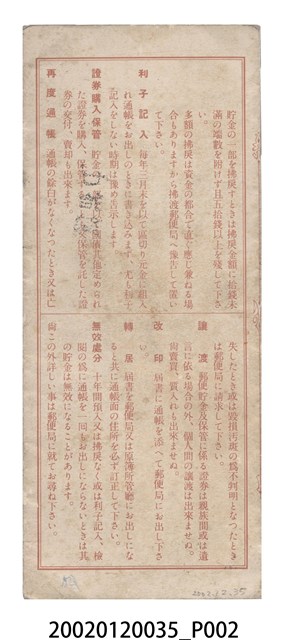 貯金の一部を拂戾すときは拂戾金額に拾錢未
滿の端數を附けず且五拾錢以上を殘して下さ
い。
多額の拂戾は資金の都合で直ぐ應じ兼ねる場
合もありますから拂渡郵便局へ豫告して置い
て下さい。
利子記入 每年三月末を以て區切り元金に組入
れ通帳をお出しのときに書き込みます、尤も利子
記入をしない時期は豫め告示します
證券購入保管 貯金
た證券を購入、保管
券の交付、賣却も出來ます。
再度通帳 通帳の餘白がなくなつたとき又は亡
失したとき或は毀損汚斑の爲不判明となつたとき
は郵便局に請求して下さい。
讓渡 郵便貯金及保管に係る證券は親族間或は遺
言に依る場合の外、個人間の讓渡は出來ませぬ。
尙賣買、質入れも出來ませぬ。
改印 屆書に通帳を添へて郵便局にお出し下さ
い。
轉居 屆書を郵便局又は原簿所管廳にお出しにな
ると共に通帳面の住所を必ず訂正して下さい。
無效處分 十年間預入又は拂戾なく或は利子記入、檢
閱の爲に通帳を一回もお出しにならないときは其
の貯金は無效になることがあります。
尙この外詳しい事は郵便局に就てお尋ね下さい。
20020120035_P002